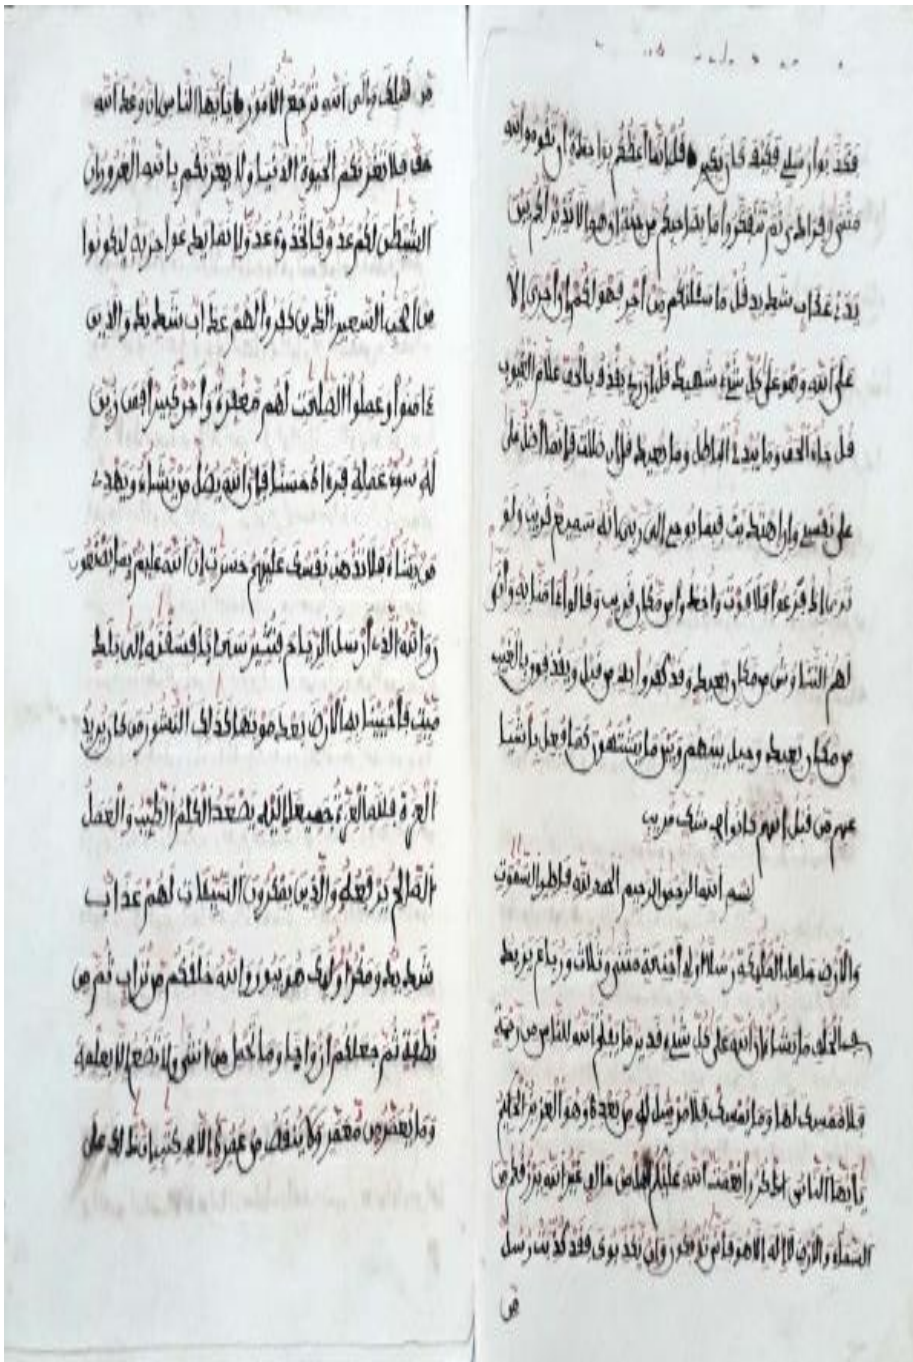 فكذبوا رسلي فكيف كان نكير قل إنما أعظكم بواحدة أن تقوموا لله
مثنى وفرادى ثم تتفكروا ما بصاحبكم من جنة إن هو إلا نذير لكم بين
يدي عذاب شديد قل ما سألتكم من أجر فهو لكم إن أجري إلا
على الله وهو على كل شيء شهيد قل إن ربي يقذف بالحق علام الغيوب
قل جاء الحق وما يبدئ الباطل وما يعيد قل إن ضللت فإنما أضل
على نفسي وإن اهتديت فبما يوحي إلي ربي إنه سميع قريب ولو
ترى إذ فزعوا فلا فوت وأخذوا من مكان قريب وقالوا ءامنا به وأنى
لهم التناوش من مكان بعيد وقد كفروا به من قبل ويقذفون بالغيب
من مكان بعيد وحيل بينهم وبين ما يشتهون كما فعل بأشيا
عهم من قبل إنهم كانوا في شك مريب
بسم الله الرحمن الرحيم الحمد لله فاطر السموت
والأرض جاعل الملئكة رسلا أولي أجنحة مثنى وثلاث ورباع يزيد
في الخلق ما يشاء إن الله على كل شيء قدير ما يفتح الله للناس من رحمة
فلا ممسك لها وما يمسك فلا مرسل له من بعده وهو العزيز الحكيم
يأيها الناس اذكروا نعمت الله عليكم هل من خالق غير الله يرزقكم من
السماء والأرض لا إله إلا هو فأنى تؤفكون وإن يكذبوك فقد كذبت رسل
من
من قبلك وإلى الله ترجع الأمور يأيها الناس إن وعد الله
حق فلا تغرنكم الحيوة الدنيا ولا يغرنكم بالله الغرور إن
الشيطن لكم عدو فاتخذوه عدوا إنما يدعوا حزبه ليكونوا
من أصحب السعير الذين كفروا لهم عذاب شديد والذين
ءامنوا وعملوا الصلحت لهم مغفرة وأجر كبير أفمن زين
له سوء عمله فرءاه حسنا فإن الله يضل من يشاء ويهدي
من يشاء فلا تذهب نفسك عليهم حسرت إن الله عليم بما يصنعون
والله الذي أرسل الريح فتثير سحابا فسقنه إلى بلد
ميت فأحيينا به الأرض بعد موتها كذلك النشور من كان يريد
العزة فلله العزة جميعا إليه يصعد الكلم الطيب والعمل
الصلح يرفعه والذين يمكرون السيئات لهم عذاب
شديد ومكر أولئك هو يبور والله خلقكم من تراب ثم من
نطفة ثم جعلكم أزواجا وما تحمل من أنثى ولا تضع إلا بعلمه
وما يعمر من معمر ولا ينقص من عمره إلا في كتب إن ذلك على